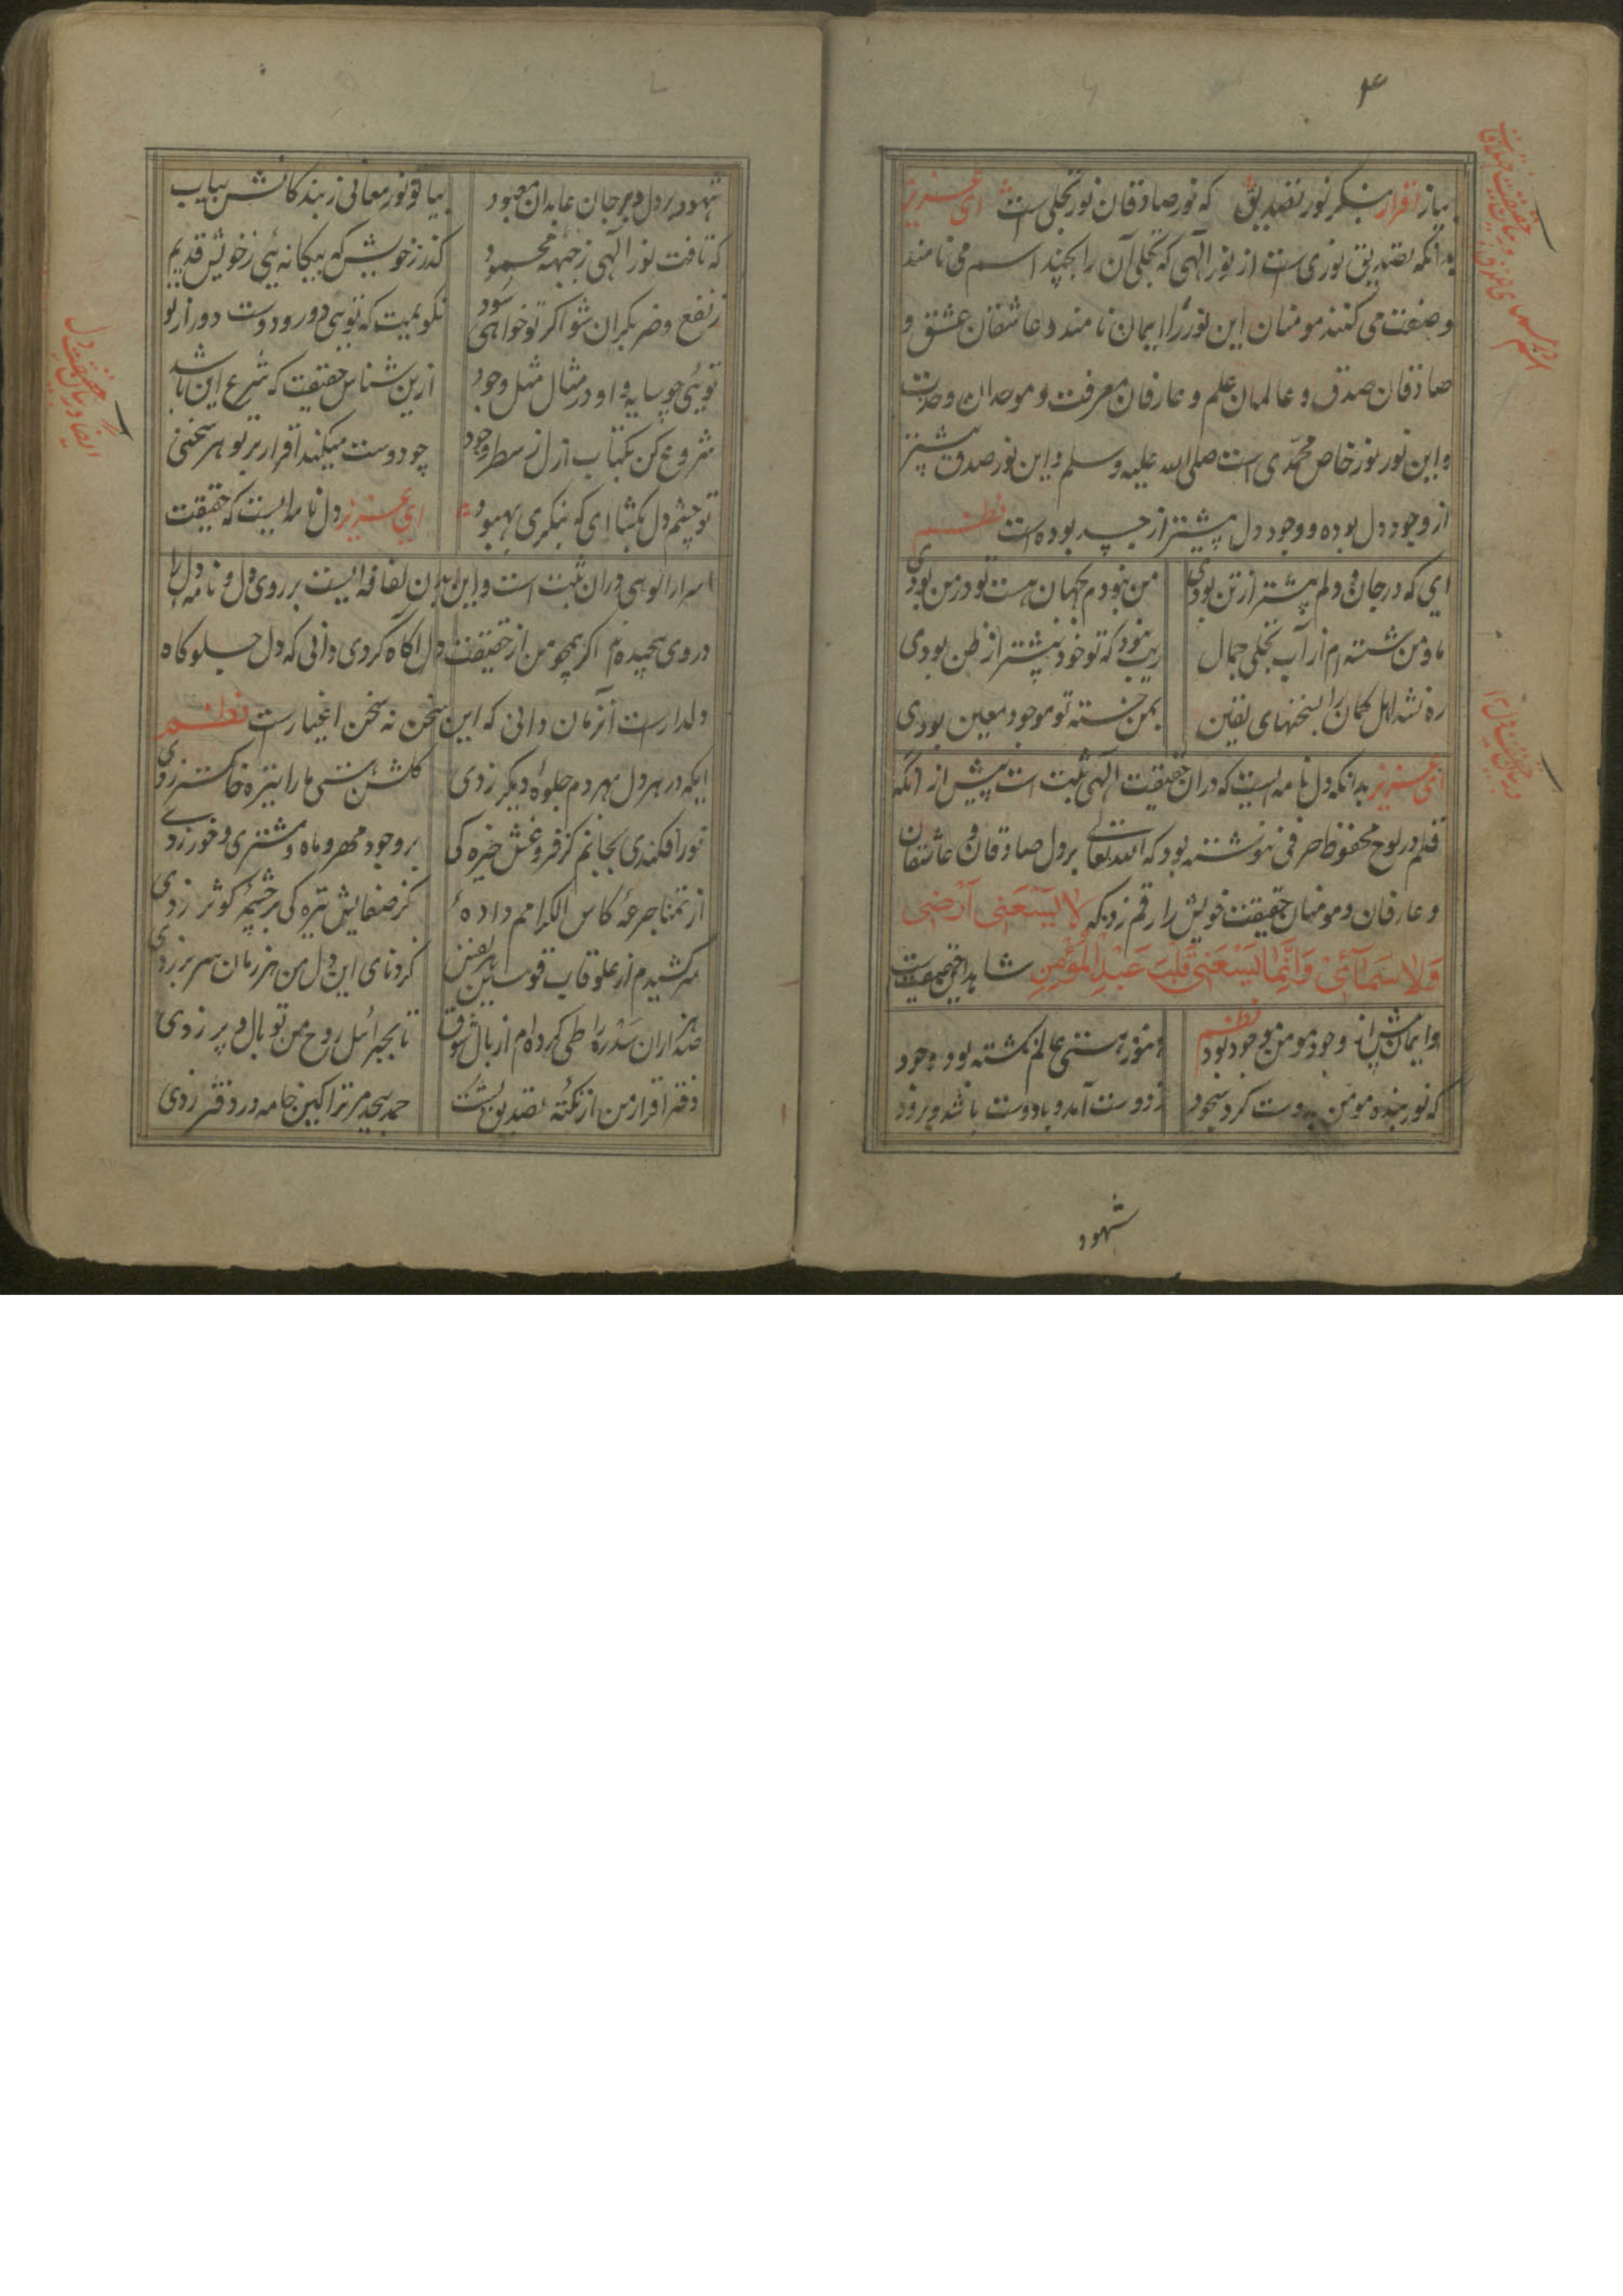 ۴
بیاز اقرار بنگر نور تصدیق که نور صادقان نور تجلی است ای عزیز
بدانکه تصدیق نوری است از نور الهی که تجلی آن را بچند اسم می نامند
وصفت می کنند مومنان این نور را ایمان نامند و عاشقان عشق و
صادقان صدق و عالمان علم و عارفان معرفت و موحدان وحدت
و این نور نور خاص محمدی است صلی الله علیه وسلم و این نور صدق پیشتر
از وجود دل بوده و وجود دل پیشتر از جسد بوده است نظم
ای که در جان و دلم پیشتر از تن بودی من نبودم بجهان هست تو در من بودی
ما و من شسته ام از آب تجلی جمال ریب نبود که تو خود پیشتر از ظن بودی
ره نشد اهل گمان را بسخنهای یقین بمن خسته تو موجود معین بودی
ای عزیز بدانکه دل نامه ایست که دران حقیقت الهی ثبت است پیش از انکه
قلم در لوح محفوظ حرفی ننوشته بود که الله تعالی بر دل صادقان و عاشقان
و عارفان و مومنان حقیقت خویش را رقم زد که لا یسعنی ارضی
ولا سمائی وانما یسعنی قلب عبد المؤمن شاهد این حقیقت
و ایمان پیش از وجود مومن موجود بود نظم هنوز هستی عالم نگشته بود وجود
که نور دیده مومن بدوست کرد سجود ز دوست آمد و با دوست باشد و برود
شهود
شهود بر دل و بر جان عابدان معبود بیا تو نور معانی ز بندگانش بیاب
که تافت نور الهی ز جبهه محمود گذر ز خویش که بیگانه ئی ز خویش قدیم
ز نفع و ضر بکران شو اگر تو خواهی سود نکو بمیت که توئی دور و دوست دور از تو
توئی چو سایه و او در مثال مثل وجود ازین شناس حقیقت که شرع این باشد
شروع کن بکتاب ازل ز سطر وجود چو دوست میکند اقرار بر تو هر سخنی
تو چشم دل بگشا ای که بنگری بهبود ای عزیز دل نامه ایست که حقیقت
اسرار الوهی دران ثبت است و این بدن لفافه ایست بر روی دل و نامه دل را
در وی پیچیده اگر همچو من از حقیقت دل آگاه گردی دانی که دل جلوگاه
دلدار است آنزمان دانی که این سخن نه سخن اغیار است نظم
ایکه در هر دل بهر دم جلوه دیگر زدی گلشن هستی ما را بتیره خاکستر زدی
نور افکندی بجانم کز فروغش خیره کی بر وجود مهر و ماه و مشتری و خور زدی
از تمنا جرعه کاس الکرامم داده ئی کز صفایش تیره کی بر چشمه کوثر زدی
سرکشیدم از علو قاب قوسین یقین کز دنای این دل من هر زمان سر بر زدی
صد هزاران سدره را طی کرده ام از بال شوق تا بجبرائیل روح من تو بال و پر زدی
دفتر اقرار من از نکته تصدیق تست حمد بیحد مر ترا کین خامه در دفتر زدی